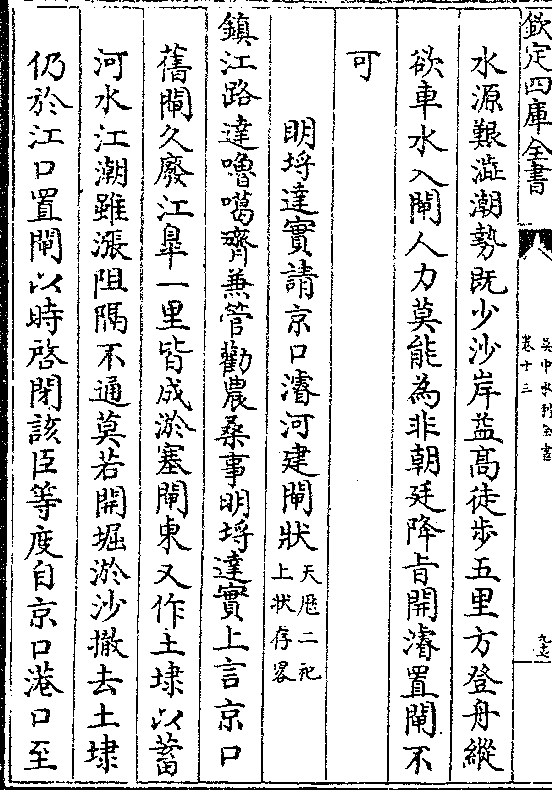 欽定四庫全書
吳中水利全書
卷十三
水源艱澁潮勢既少沙岸益髙徒歩五里方登舟縱
欲車水入閘人力莫能為非朝廷降旨開濬置閘不
可
明埒達實請京口濬河建閘狀
天厯二年
上狀存畧
鎮江路達嚕噶齊兼管勸農桑事明埒達實上言京口
舊閘久廢江臯一里皆成淤塞閘東又作土埭以蓄
河水江潮雖漲阻隔不通莫若開堀淤沙撤去土埭
仍於江口置閘以時啓閉該臣等度自京口港口至